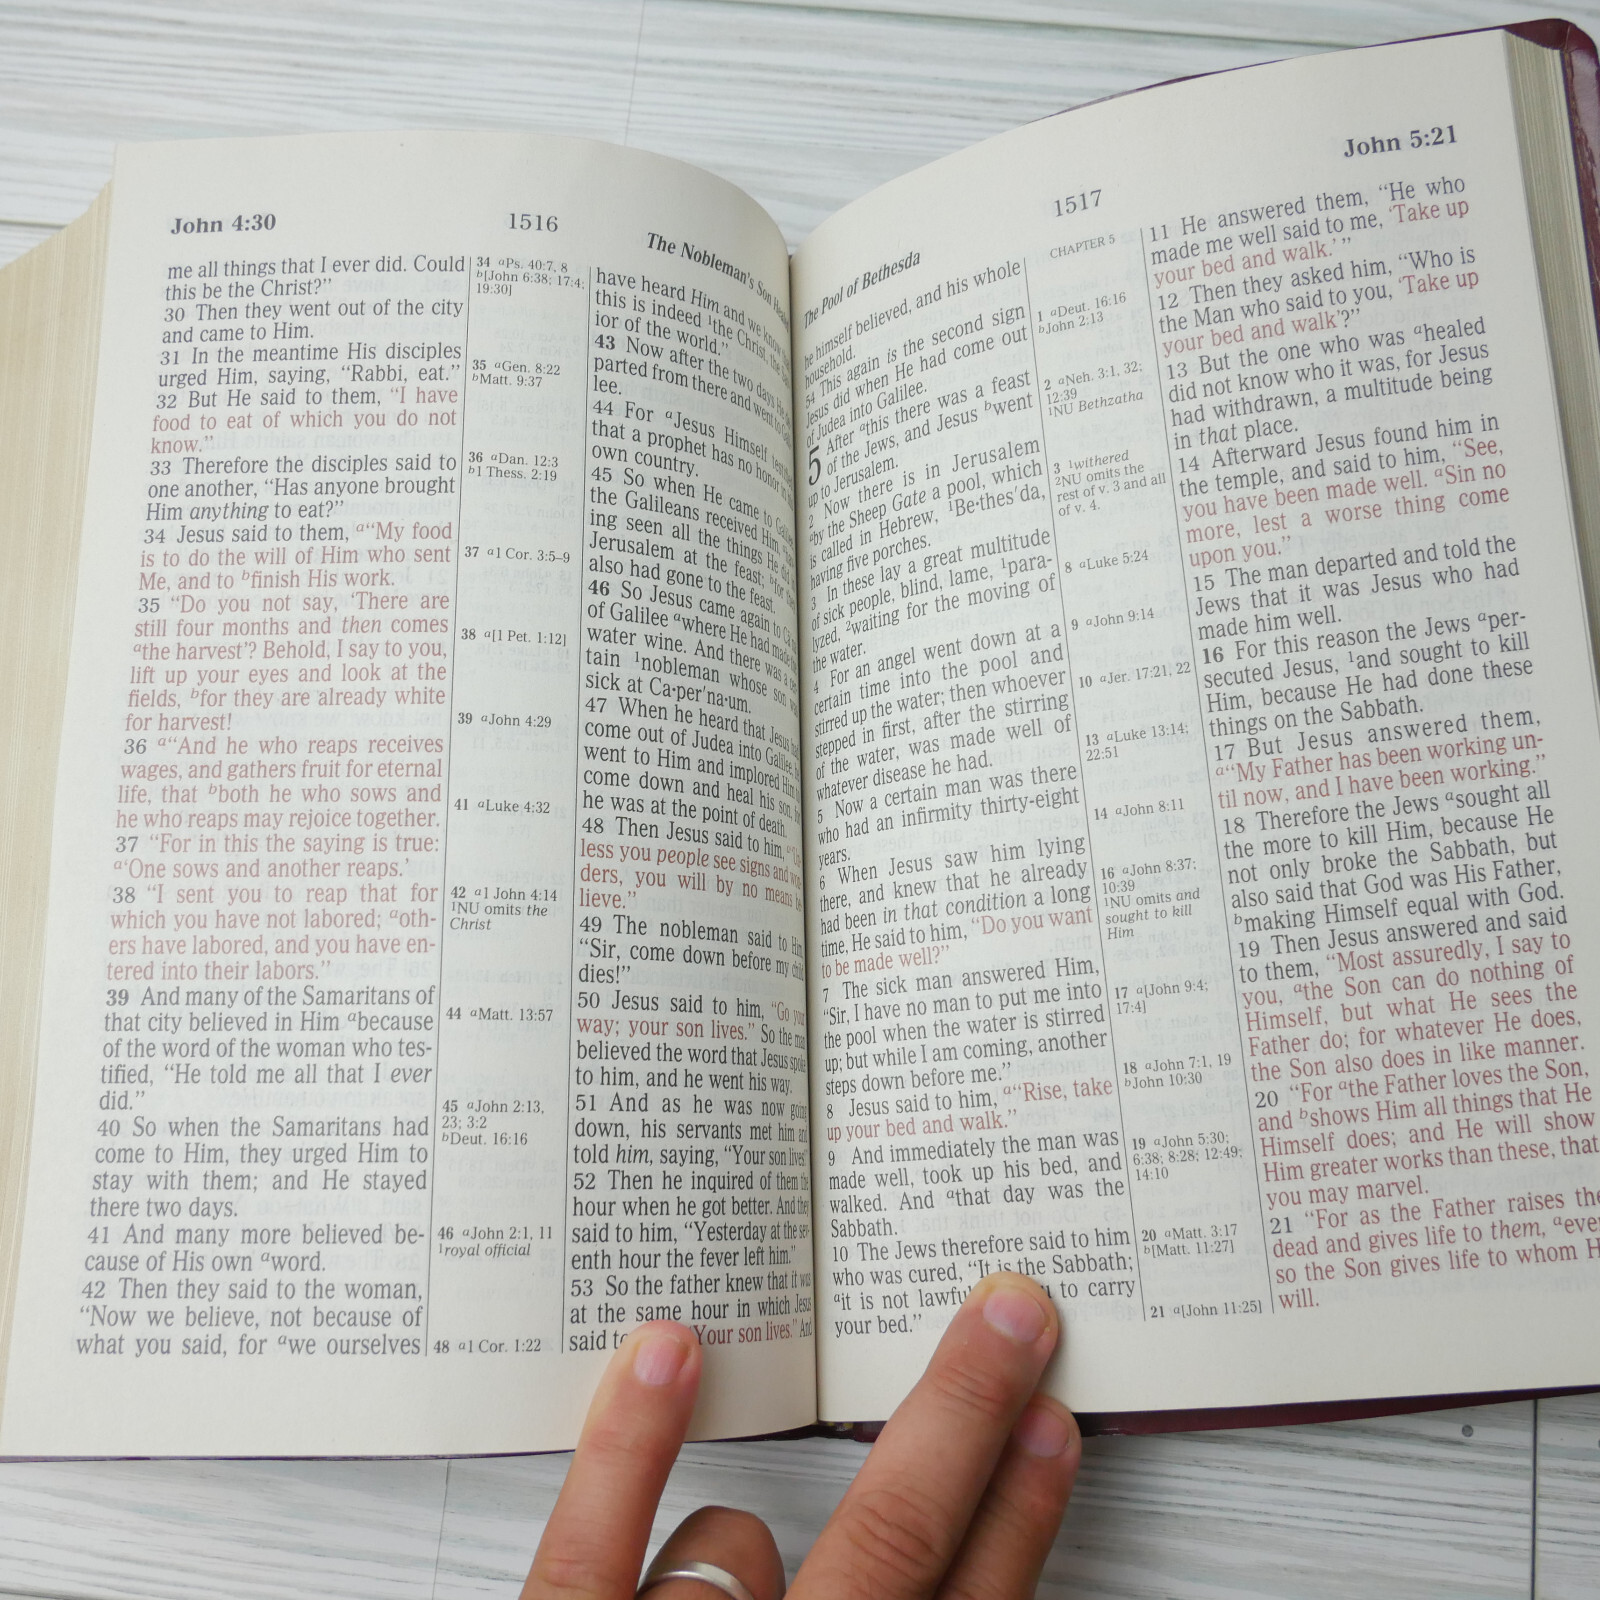 John 4:30
1516
The Nobleman's Son Healed
me all things that I ever did. Could
this be the Christ?”
30 Then they went out of the city
and came to Him.
31 In the meantime His disciples
urged Him, saying, “Rabbi, eat.”
32 But He said to them, “I have
food to eat of which you do not
know.”
33 Therefore the disciples said to
one another, “Has anyone brought
Him anything to eat?”
34 Jesus said to them, a“My food
is to do the will of Him who sent
Me, and to bfinish His work.
35 “Do you not say, ‘There are
still four months and then comes
athe harvest’? Behold, I say to you,
lift up your eyes and look at the
fields, bfor they are already white
for harvest!
36 a“And he who reaps receives
wages, and gathers fruit for eternal
life, that bboth he who sows and
he who reaps may rejoice together.
37 “For in this the saying is true:
a‘One sows and another reaps.’
38 “I sent you to reap that for
which you have not labored; aoth-
ers have labored, and you have en-
tered into their labors.”
39 And many of the Samaritans of
that city believed in Him abecause
of the word of the woman who tes-
tified, “He told me all that I ever
did.”
40 So when the Samaritans had
come to Him, they urged Him to
stay with them; and He stayed
there two days.
41 And many more believed be-
cause of His own aword.
42 Then they said to the woman,
“Now we believe, not because of
what you said, for awe ourselves
34 aPs. 40:7, 8
b[John 6:38; 17:4;
19:30]
35 aGen. 8:22
bMatt. 9:37
36 aDan. 12:3
b1 Thess. 2:19
37 a1 Cor. 3:5–9
38 a[1 Pet. 1:12]
39 aJohn 4:29
41 aLuke 4:32
42 a1 John 4:14
1NU omits the
Christ
44 aMatt. 13:57
45 aJohn 2:13,
23; 3:2
bDeut. 16:16
46 aJohn 2:1, 11
1royal official
48 a1 Cor. 1:22
have heard Him and we know that
this is indeed 1the Christ, the Sav-
ior of the world.”
43 Now after the two days He de-
parted from there and went to Gali-
lee.
44 For aJesus Himself testified
that a prophet has no honor in his
own country.
45 So when He came to Galilee,
the Galileans received Him,
ing seen all the things He did in
Jerusalem at the feast; bfor they
also had gone to the feast.
46 So Jesus came again to Cana
of Galilee awhere He had made the
water wine. And there was a cer-
tain 1nobleman whose son was
sick at Ca·per′na·um.
47 When he heard that Jesus had
come out of Judea into Galilee, he
went to Him and implored Him to
come down and heal his son, for
he was at the point of death.
48 Then Jesus said to him, a“Un-
less you people see signs and won-
ders, you will by no means be-
lieve.”
49 The nobleman said to Him,
“Sir, come down before my child
dies!”
50 Jesus said to him, “Go your
way; your son lives.” So the man
believed the word that Jesus spoke
to him, and he went his way.
51 And as he was now going
down, his servants met him and
told him, saying, “Your son lives!”
52 Then he inquired of them the
hour when he got better. And they
said to him, “Yesterday at the sev-
enth hour the fever left him.”
53 So the father knew that it was
at the same hour in which Jesus
said to “Your son lives.” And
The Pool of Bethesda
1517
John 5:21
he himself believed, and his whole
household.
54 This again is the second sign
Jesus did when He had come out
of Judea into Galilee.
5 After athis there was a feast
of the Jews, and Jesus bwent
up to Jerusalem.
2 Now there is in Jerusalem
aby the Sheep Gate a pool, which
is called in Hebrew, 1Be·thes′da,
having five porches.
3 In these lay a great multitude
of sick people, blind, lame, 1para-
lyzed, 2waiting for the moving of
the water.
4 For an angel went down at a
certain time into the pool and
stirred up the water; then whoever
stepped in first, after the stirring
of the water, was made well of
whatever disease he had.
5 Now a certain man was there
who had an infirmity thirty-eight
years.
6 When Jesus saw him lying
there, and knew that he already
had been in that condition a long
time, He said to him, “Do you want
to be made well?”
7 The sick man answered Him,
“Sir, I have no man to put me into
the pool when the water is stirred
up; but while I am coming, another
steps down before me.”
8 Jesus said to him, a“Rise, take
up your bed and walk.”
9 And immediately the man was
made well, took up his bed, and
walked. And athat day was the
Sabbath.
10 The Jews therefore said to him
who was cured, “It is the Sabbath;
ait is not lawful to carry
your bed.”
CHAPTER 5
1 aDeut. 16:16
bJohn 2:13
2 aNeh. 3:1, 32;
12:39
1NU Bethzatha
3 1withered
2NU omits the
rest of v. 3 and all
of v. 4.
8 aLuke 5:24
9 aJohn 9:14
10 aJer. 17:21, 22
13 aLuke 13:14;
22:51
14 aJohn 8:11
16 aJohn 8:37;
10:39
1NU omits and
sought to kill
Him
17 a[John 9:4;
17:4]
18 aJohn 7:1, 19
bJohn 10:30
19 aJohn 5:30;
6:38; 8:28; 12:49;
14:10
20 aMatt. 3:17
b[Matt. 11:27]
21 a[John 11:25]
11 He answered them, “He who
made me well said to me, ‘Take up
your bed and walk.’ ”
12 Then they asked him, “Who is
the Man who said to you, ‘Take up
your bed and walk’?”
13 But the one who was ahealed
did not know who it was, for Jesus
had withdrawn, a multitude being
in that place.
14 Afterward Jesus found him in
the temple, and said to him, “See,
you have been made well. aSin no
more, lest a worse thing come
upon you.”
15 The man departed and told the
Jews that it was Jesus who had
made him well.
16 For this reason the Jews aper-
secuted Jesus, 1and sought to kill
Him, because He had done these
things on the Sabbath.
17 But Jesus answered them,
a“My Father has been working un-
til now, and I have been working.”
18 Therefore the Jews asought all
the more to kill Him, because He
not only broke the Sabbath, but
also said that God was His Father,
bmaking Himself equal with God.
19 Then Jesus answered and said
to them, “Most assuredly, I say to
you, athe Son can do nothing of
Himself, but what He sees the
Father do; for whatever He does,
the Son also does in like manner.
20 “For athe Father loves the Son,
and bshows Him all things that He
Himself does; and He will show
Him greater works than these, that
you may marvel.
21 “For as the Father raises the
dead and gives life to them, aeven
so the Son gives life to whom He
will.